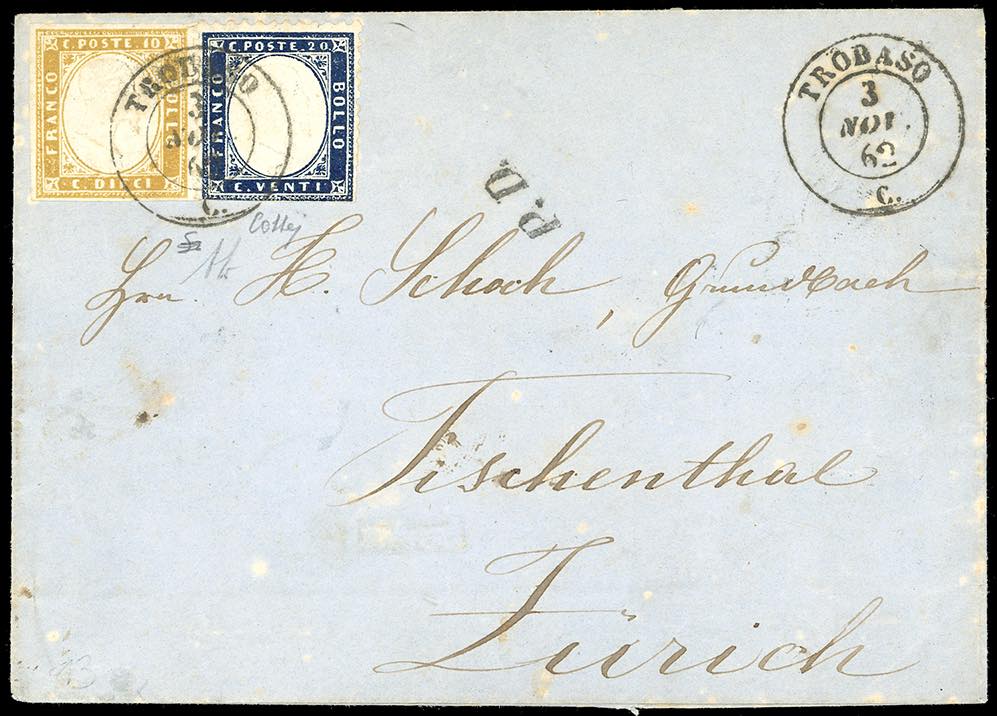 C. POSTE. 10
FRANCO
BOLLO
C. DIECI
C. POSTE. 20
FRANCO
BOLLO
C. VENTI
TROBASO
3
NOV.
62
C.
TROBASO
3
NOV.
62
C.
P. D.
Hrn. H. Schoch, Grundbach
Fischenthal
Zürich